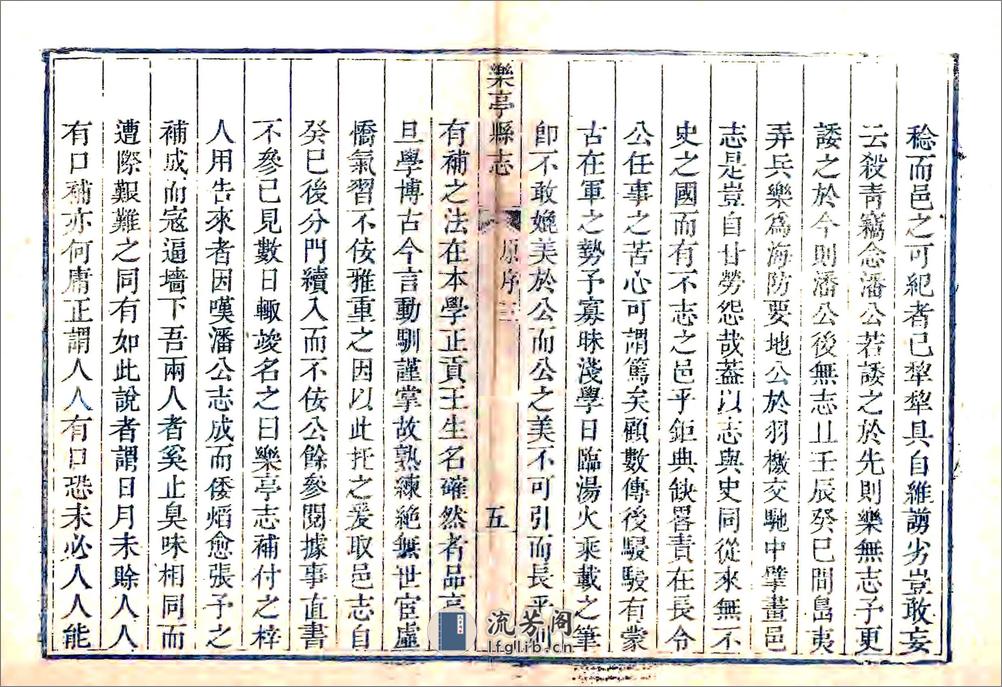 稔而邑之可紀者已犂犂具自維謭劣豈敢妄
云殺青竊念潘公若諉之於先則樂無志予更
諉之於今則潘公後無志且壬辰癸巳間島夷
弄兵樂爲海防要地公於羽檄交馳中擘畫邑
志是豈自甘勞怨哉葢以志與史同從來無不
史之國而有不志之邑乎鉅典缺畧責在長令
公任事之苦心可謂篤矣顧數傳後駸駸有蒙
古在軍之勢予寡昧淺學日臨湯火乘載之筆
卽不敢媲美於公而公之美不可引而長乎則
樂亭縣志
原序三
五
有補之法在本學正貢王生名確然者品高
旦學博古今言動馴謹掌故熟練絶無世官虛
憍氣習不佞雅重之因以此托之爰取邑志自
癸巳後分門續入而不佞公餘參閱據事直書
不參已見數日輙竣名之曰樂亭志補付之梓
人用告來者因嘆潘公志成而倭熖愈張予之
補成而寇逼墻下吾兩人者奚止臭味相同而
遭際艱難之同有如此說者謂日月未除人人
有口補亦何庸正謂人人有口恐未必人人能
流芳阁
lfglib.cn